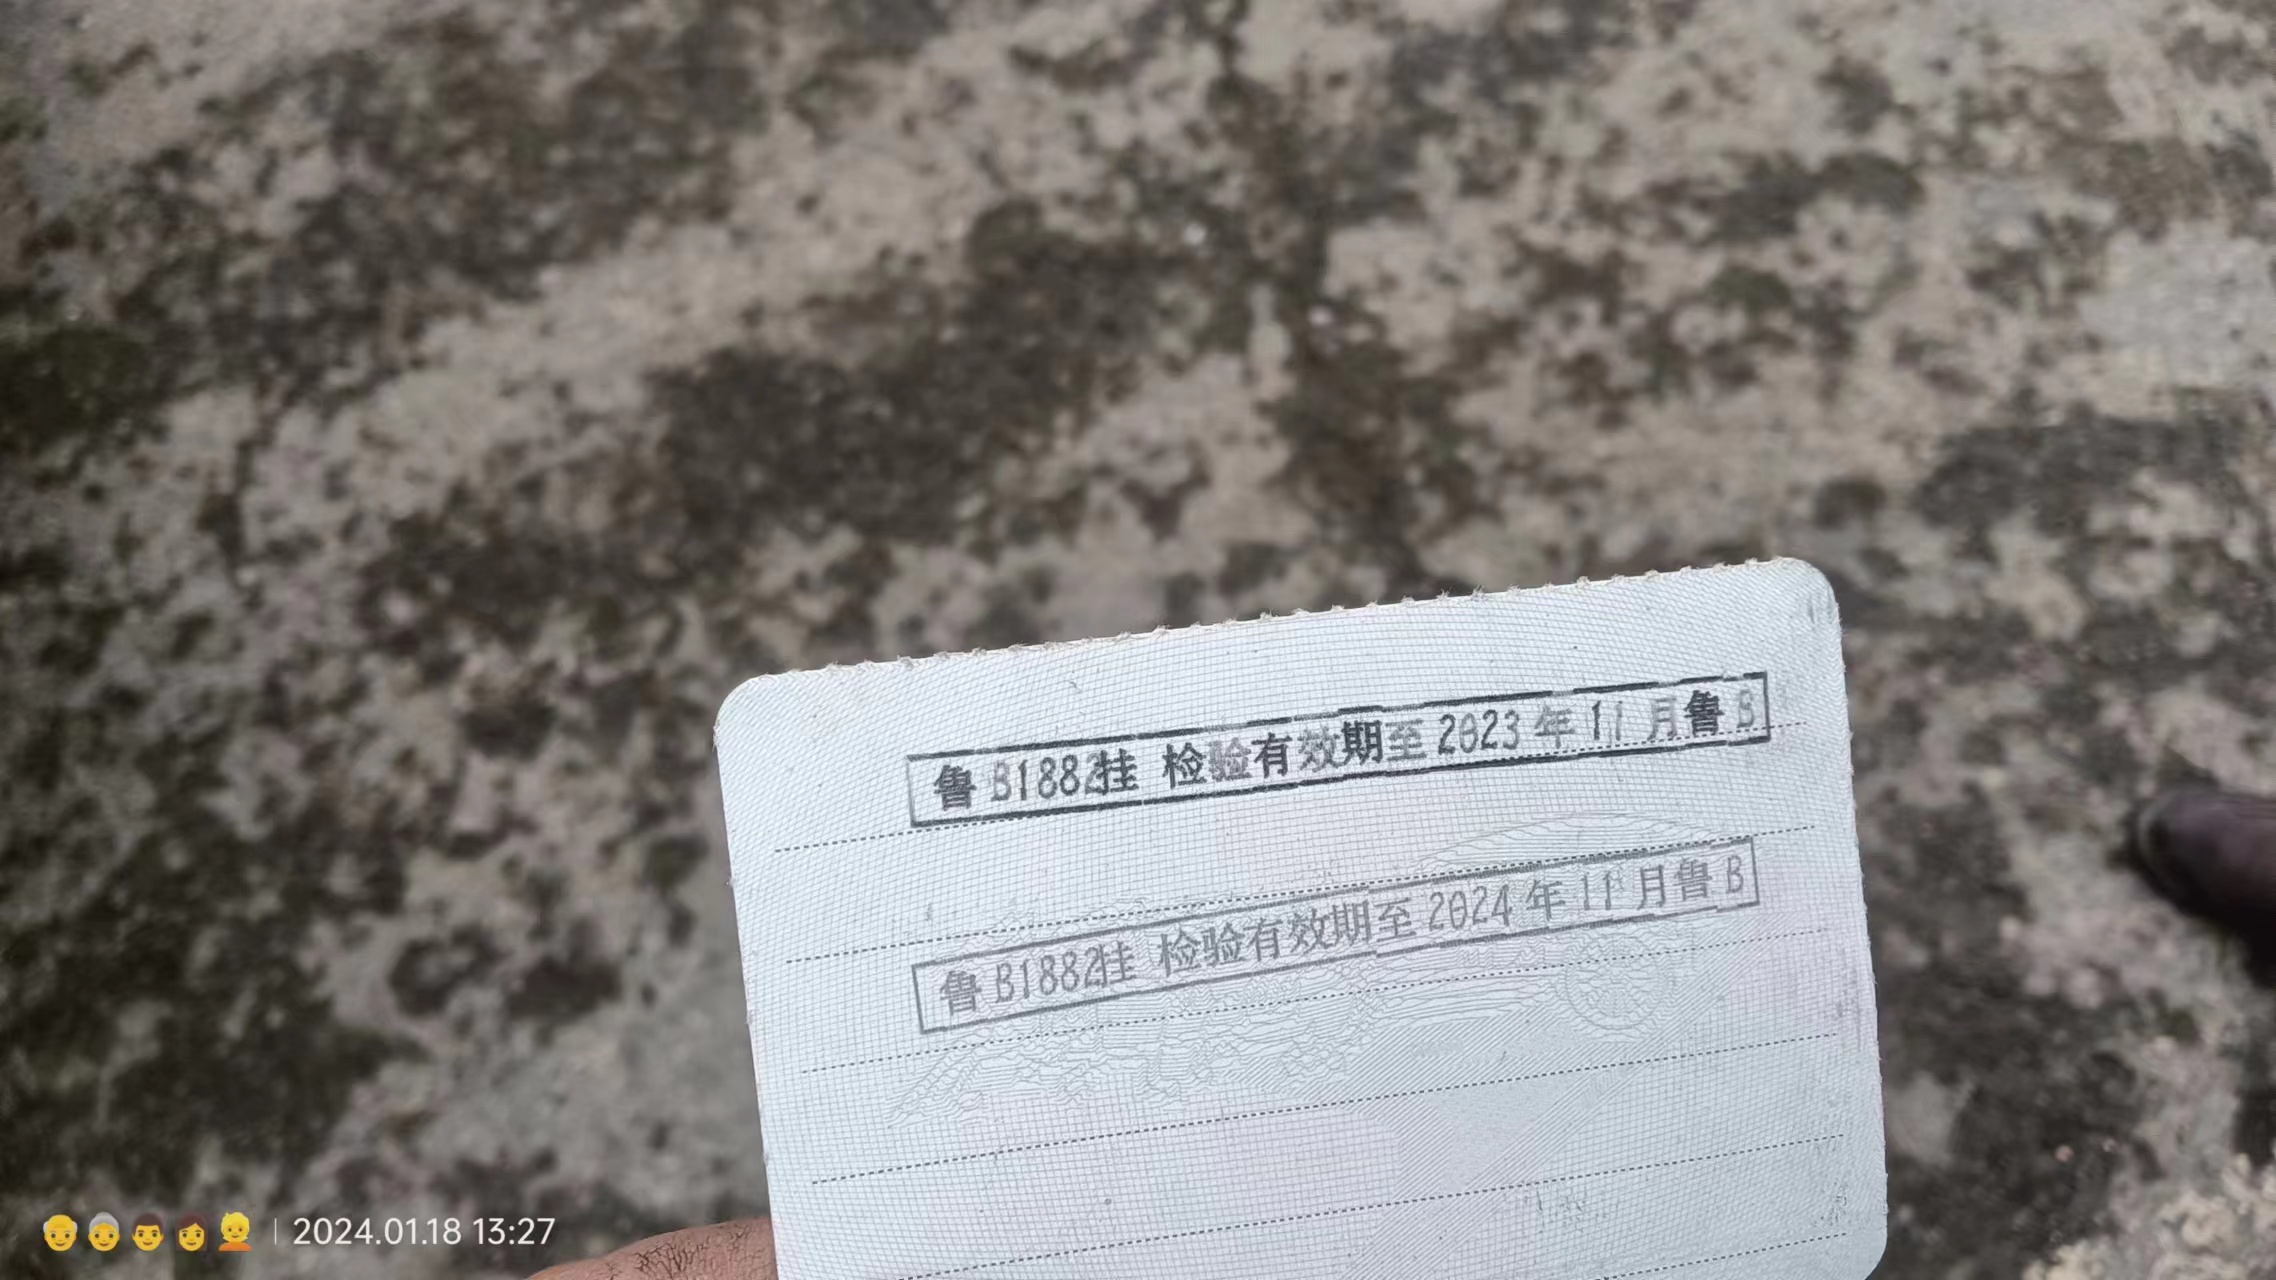 鲁 B1882挂 检验有效期至 2023 年 11 月鲁 B
鲁 B1882挂 检验有效期至 2024 年 11 月鲁 B
2024.01.18 13:27